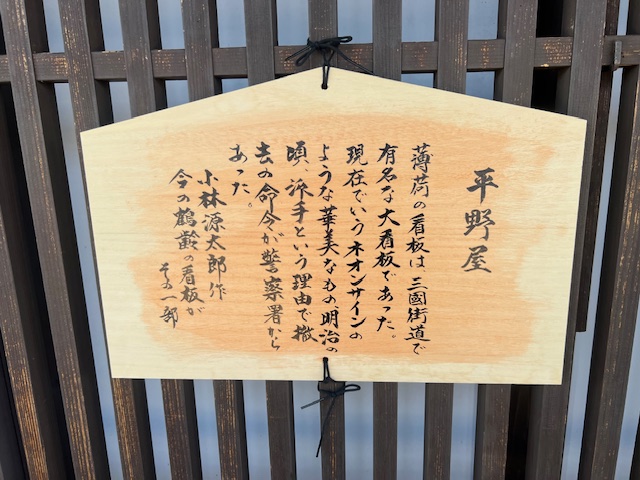 平野屋
薄荷の看板は、三國街道で
有名な大看板であった。
現在でいうネオンサインの
ような華美なもの、明治の
頃、派手という理由で撤
去の命令が警察署から
あった。
小林源太郎作
今の鶴齢の看板が
その一部